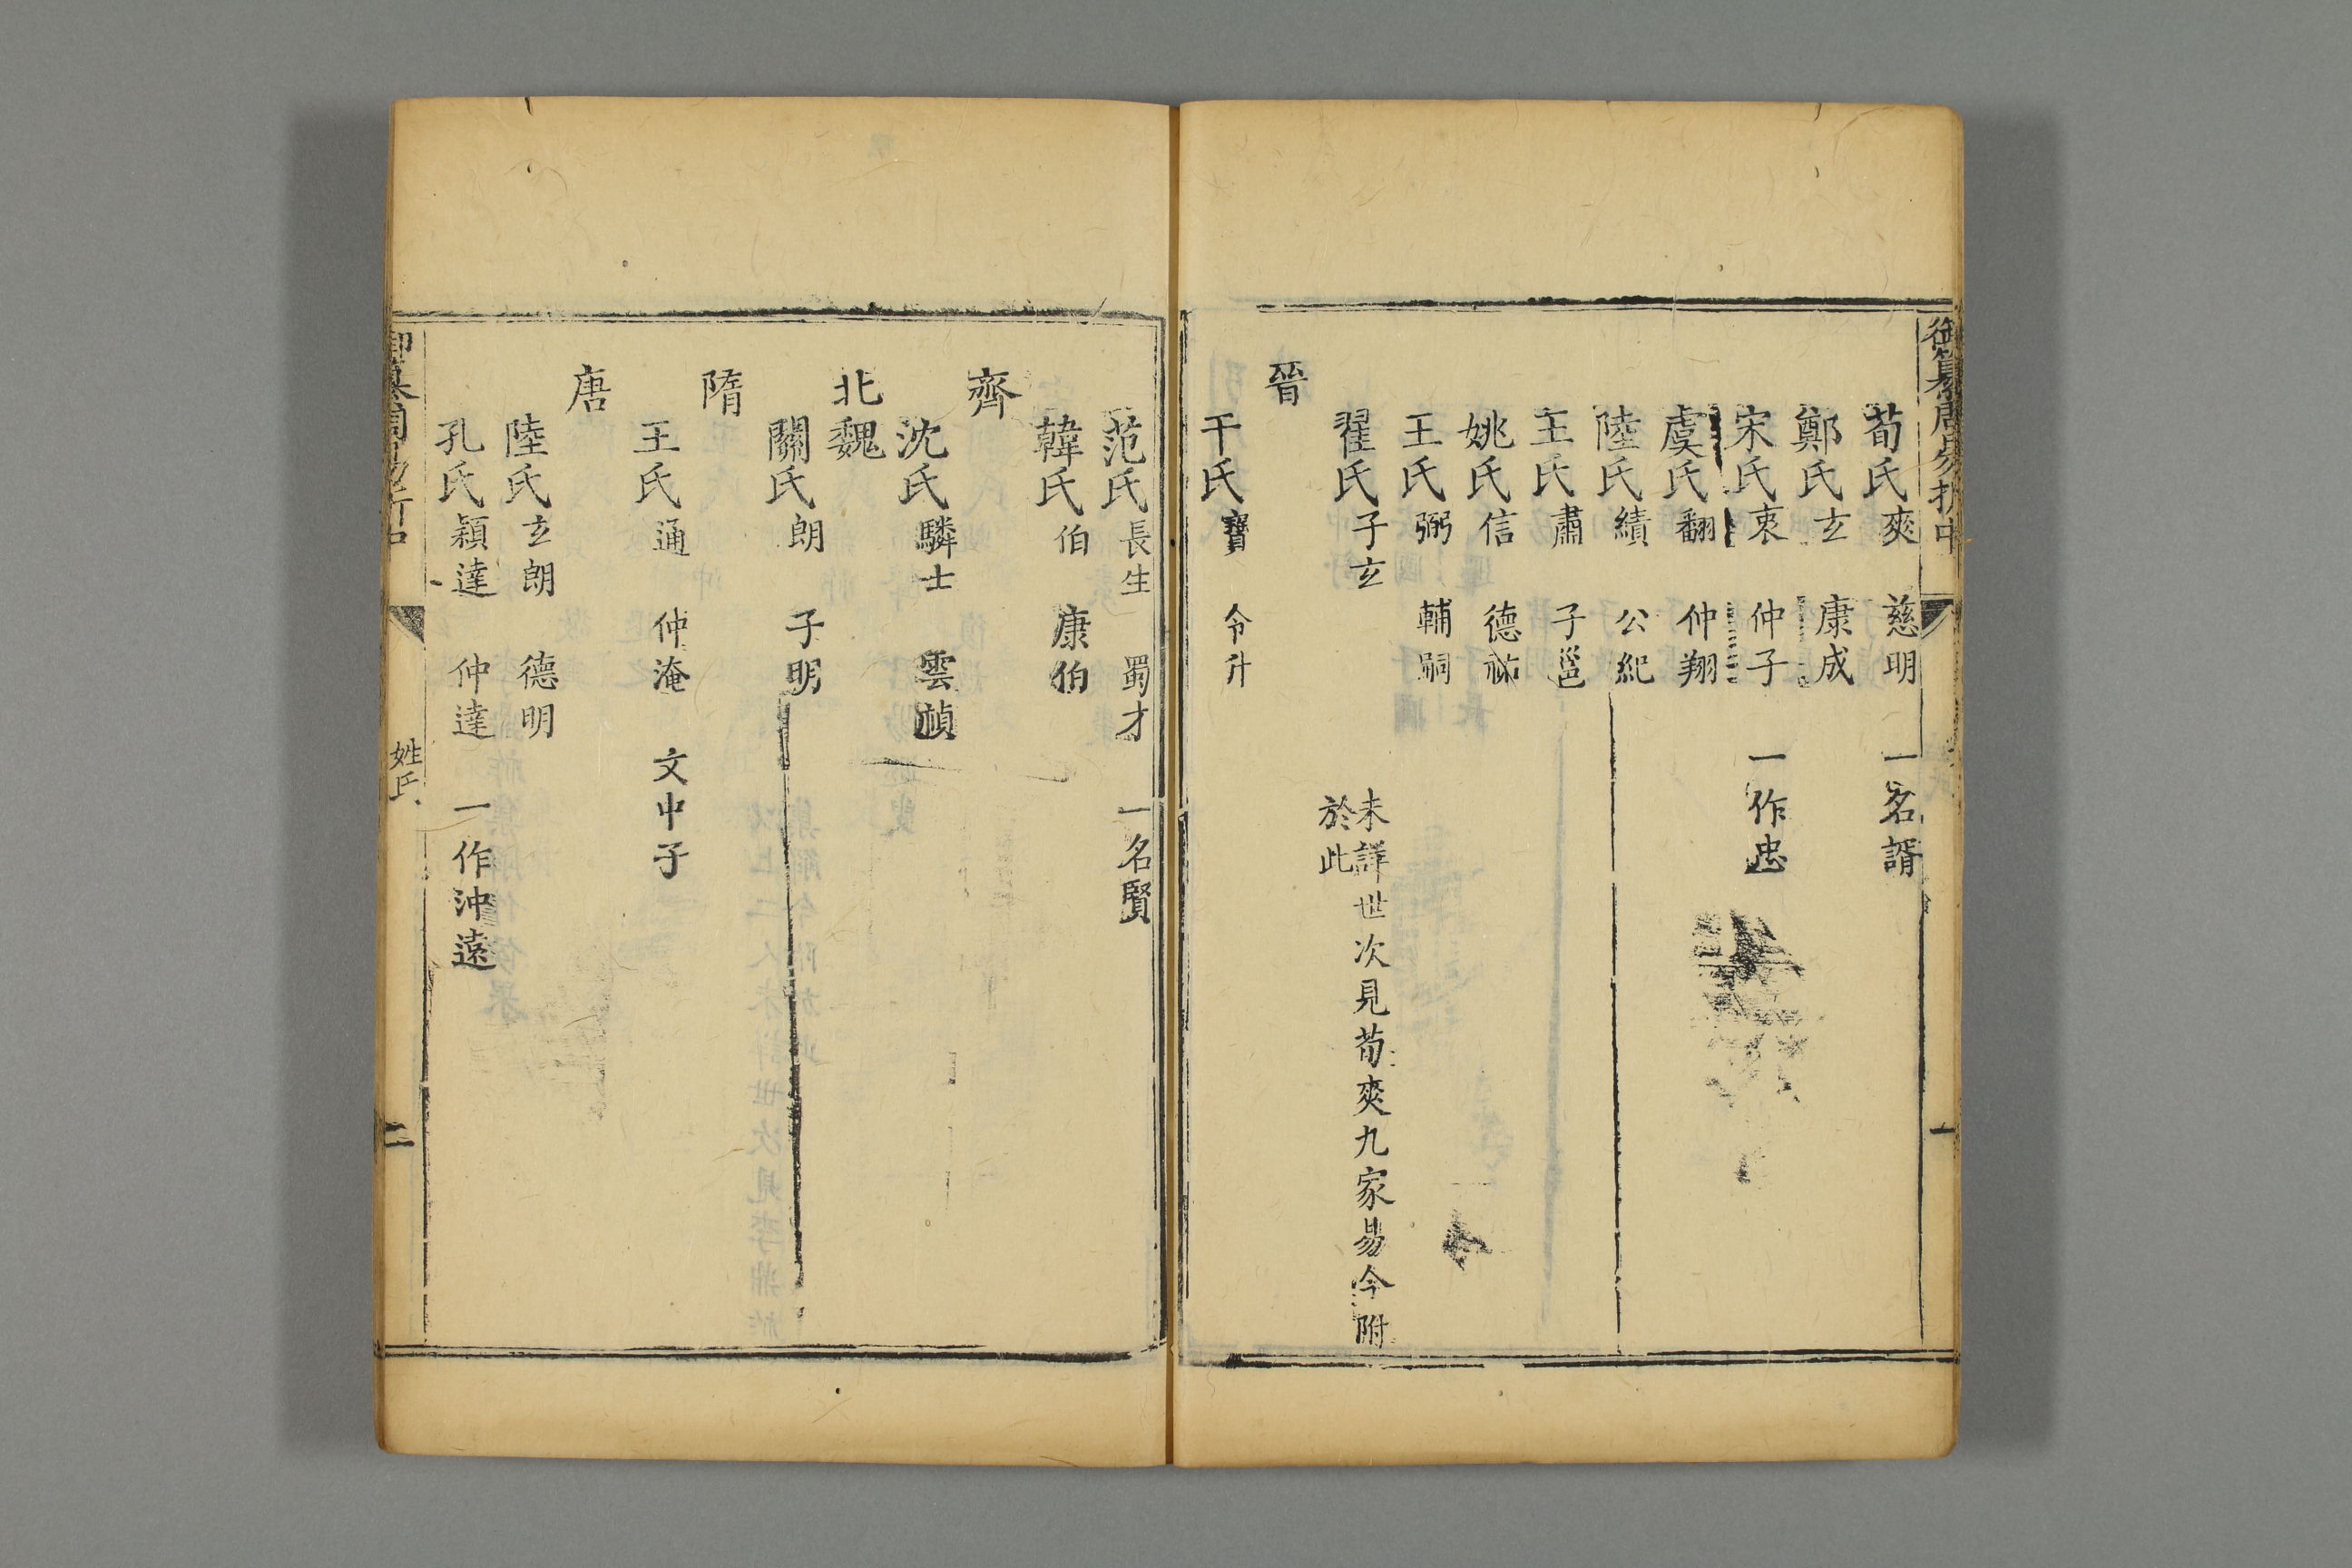 御纂周易折中
一
荀氏爽 慈明 一名諝
鄭氏玄 康成
宋氏衷 仲子 一作忠
虞氏翻 仲翔
陸氏績 公紀
王氏肅 子邕
姚氏信 德祐
王氏弼 輔嗣
翟氏子玄 未詳世次見荀爽九家易今附
於此
晉
干氏寶 令升
范氏長生 蜀才 一名賢
韓氏伯 康伯
齊
沈氏驎士 雲禎
北魏
關氏朗 子明
隋
王氏通 仲淹 文中子
唐
陸氏玄朗 德明
孔氏穎達 仲達 一作沖遠
御纂周易折中
姓氏
二